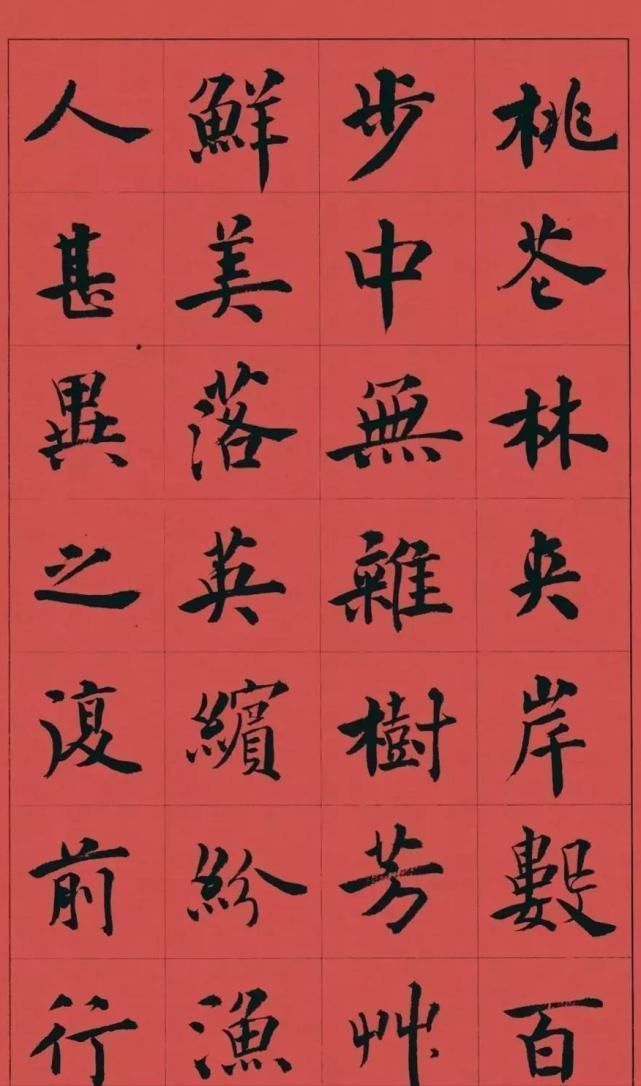 桃花林夾岸數百
步中無雜樹芳艸
鮮美落英繽紛漁
人甚異之復前行